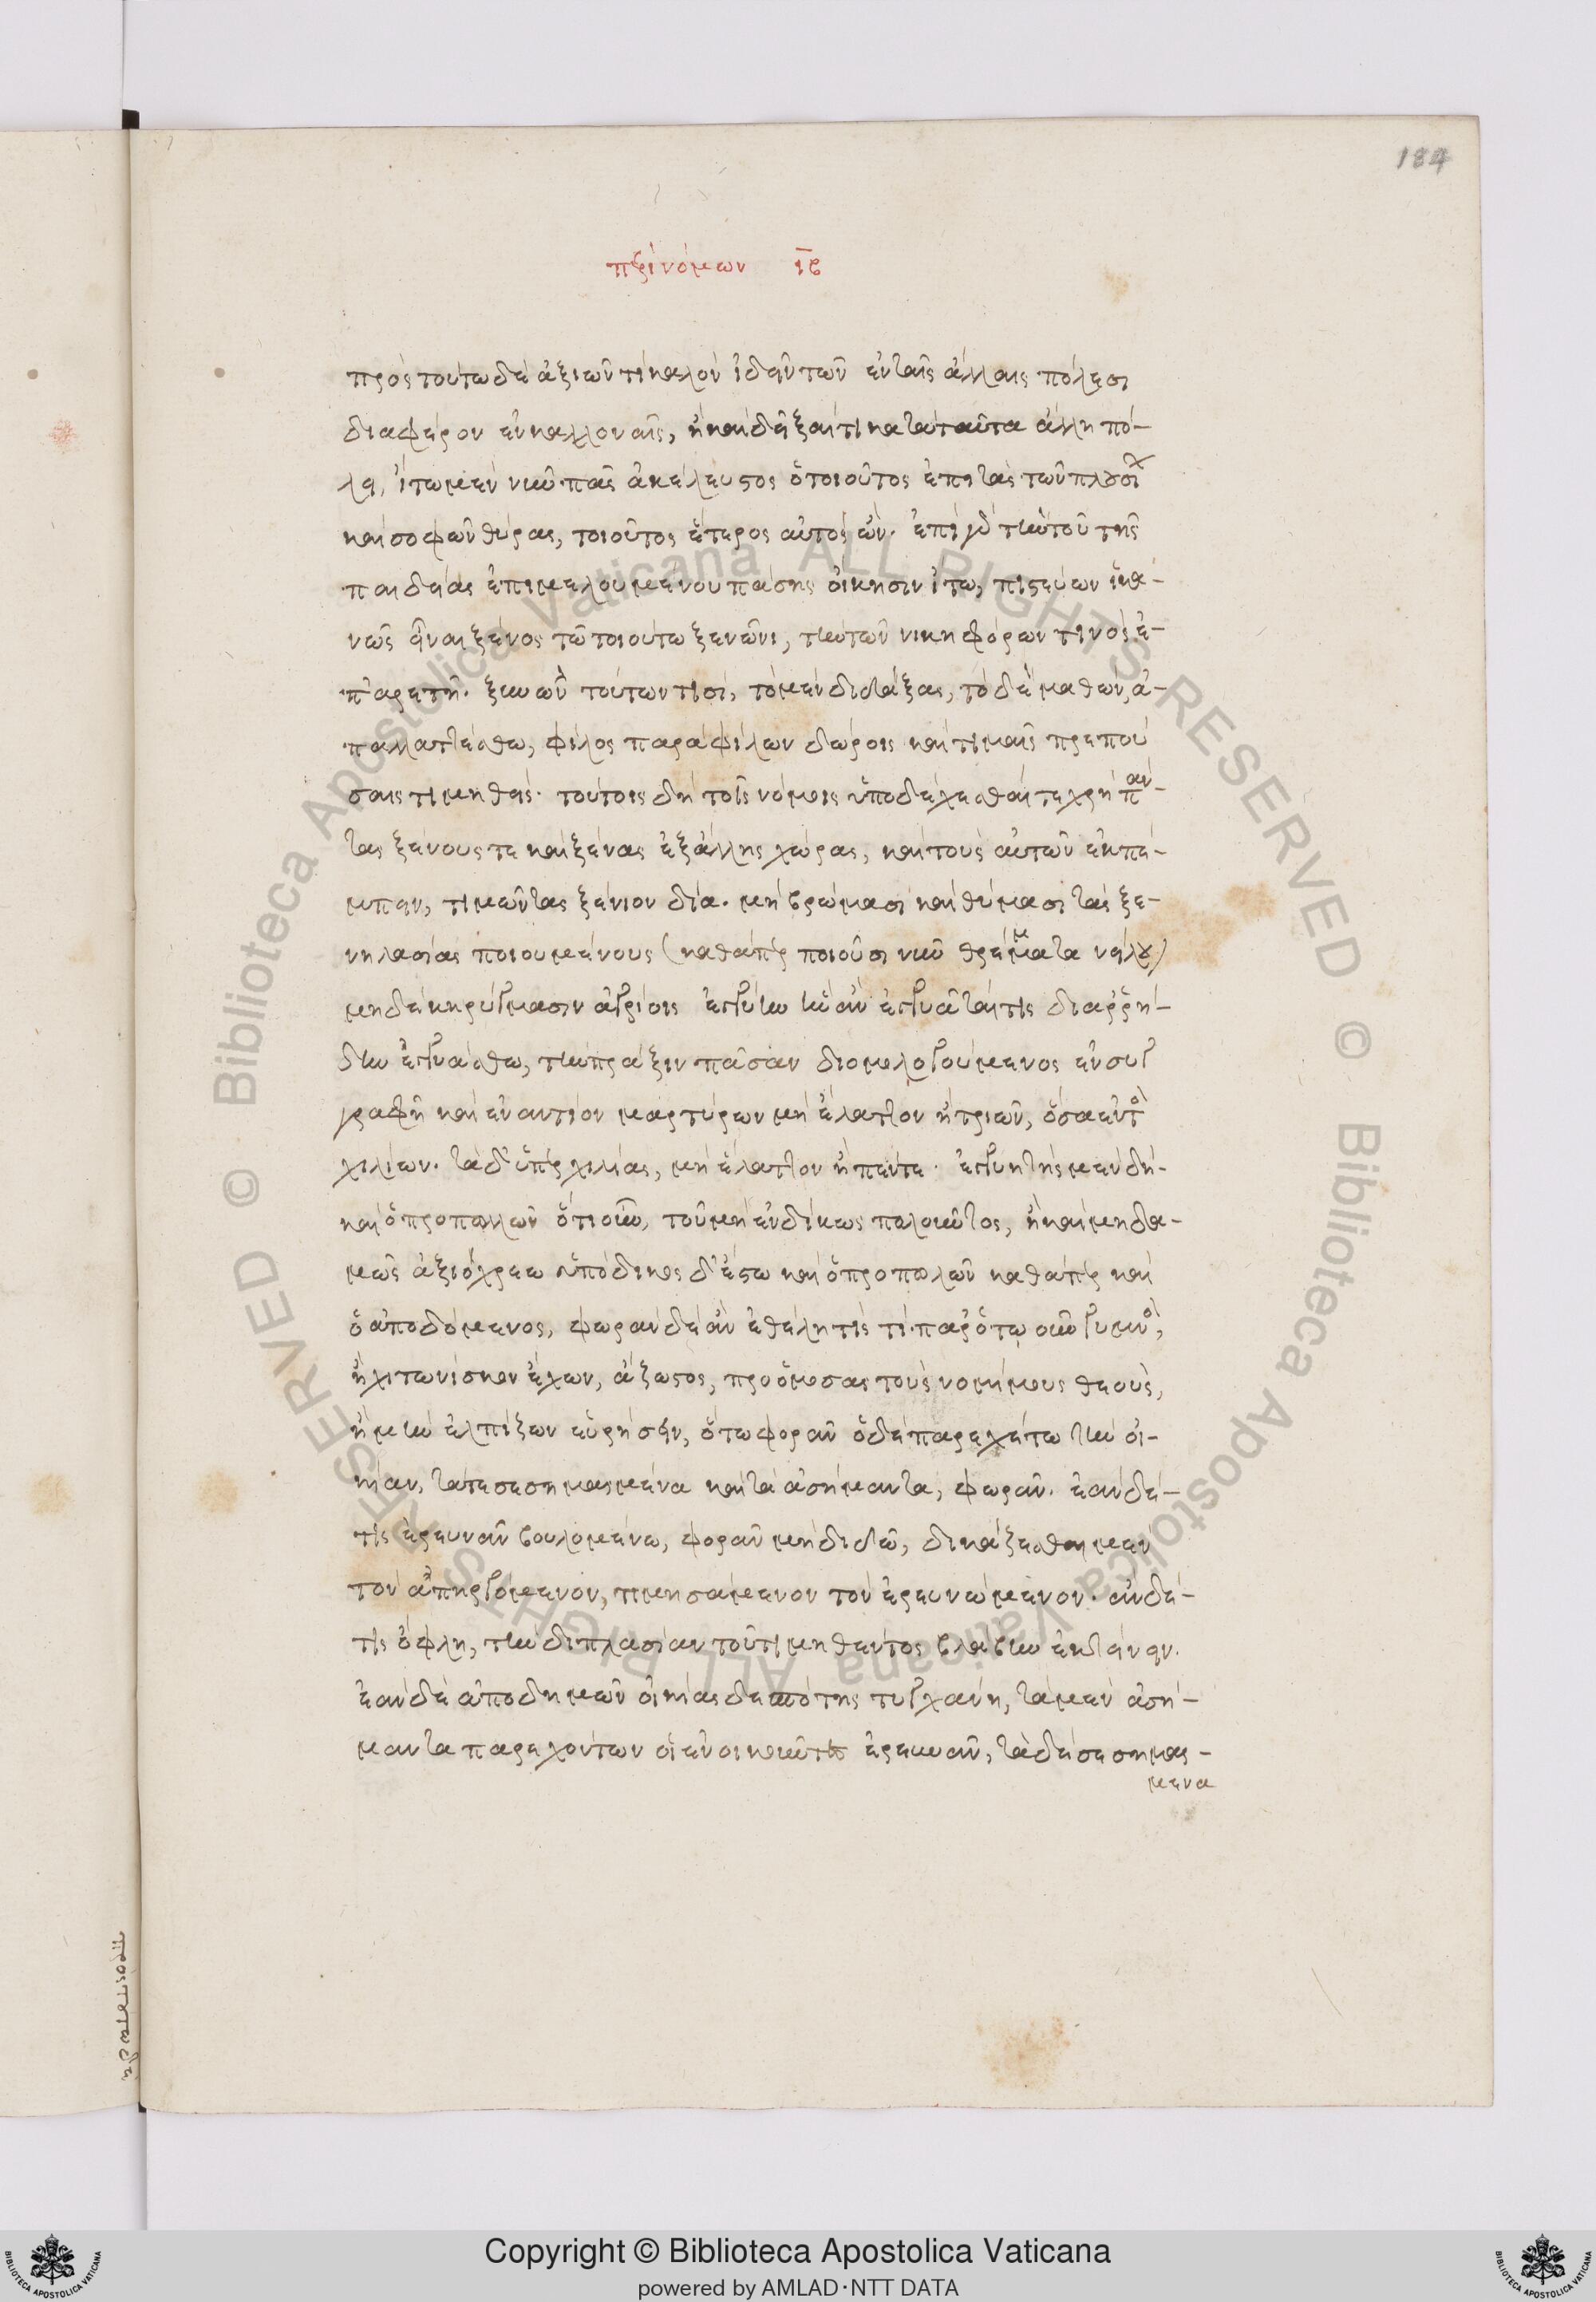 184
περὶ νόμων ιβ
πρὸς τούτω δὲ ἀξιῶν τι καλὸν ἰδεῖν τῶν ἐν ταῖς ἄλλαις πόλεσι
διαφέρον ἐν καλλοναῖς, ἢ καὶ δεῖξαί τι κατὰ ταῦτα ἄλλη πό-
λει, ἴτω μὲν νῦν πᾶς ἀκέλευστος ὁ τοιοῦτος ἐπὶ τὰς τῶν πλουσί
καὶ σοφῶν θύρας, τοιοῦτος ἕτερος αὐτὸς ὤν. ἐπὶ γὰρ τὴν τοῦ τῆς
παιδείας ἐπιμελουμένου πάσης οἴκησιν ἴτω, πιστεύων ἱκα-
νῶς εἶναι ξένος τῶ τοιούτω ξενῶνι, τὴν τῶν νικηφόρων τινὸς ἐ-
π' ἀρετῆ. ξυνὼν τούτων τισί, τὸ μὲν διδάξας, τὸ δὲ μαθών, ἀ-
παλλαττέσθω, φίλος παρὰ φίλων δώροις καὶ τιμαῖς πρεπού
σαις τιμηθείς. τούτοις δὴ τοῖς νόμοις ὑποδέχεσθαί τε χρὴ πάν-
τας ξένους τε καὶ ξένας ἐξ ἄλλης χώρας, καὶ τοὺς αὐτῶν ἐκπέ-
μπειν, τιμῶντας ξένιον δία. μὴ βρώμασι καὶ θύμασι τὰς ξε-
νηλασίας ποιουμένους (καθάπερ ποιοῦσι νῦν θρέμματα νείλου)
μηδὲ κηρύγμασιν ἀγρίοις ἐγγύην ἣν ἂν ἐγγυᾶταί τις διαῤῥή-
δην ἐγγυάσθω, τὴν πρᾶξιν πᾶσαν διομολογούμενος ἐν συγ
γραφῆ καὶ ἐναντίον μαρτύρων μὴ ἔλαττον ἢ τριῶν, ὅσα ἐντὸ
χιλίων. τὰ δ' ὑπὲρ χιλίας, μὴ ἔλαττον ἢ πέντε. ἐγγυητὴς μὲν δὴ-
καὶ ὁ προπωλῶν ὁτιοῦν, τοῦ μὴ ἐνδίκως πωλοῦντος, ἢ καὶ μηδα-
μῶς ἀξιόχρεω ὑπόδικος δ' ἔστω καὶ ὁ προπωλῶν καθάπερ καὶ
ὁ ἀποδόμενος, φωρᾶν δὲ ἂν ἐθέλη τίς τι παρ' ὁτωοῦν γυμνὸ,
ἢ χιτωνίσκον ἔχων, ἄζωστος, προομόσας τοὺς νομίμους θεοὺς,
ἦ μὴν ἐλπίζων εὑρήσειν, οὕτω φορᾶν ὁ δὲ παρεχέτω τὴν οἰ-
κίαν, τά τε σεσημασμένα καὶ τὰ ἀσήμαντα, φωρᾶν. ἐὰν δέ-
τις ἐρευνᾶν βουλομένω, φορᾶν μὴ διδῶ, δικάζεσθαι μὲν
τὸν ἀπειργόμενον, τιμησάμενον τὸν ἐρευνώμενον. ἂν δέ-
τις ὄφλη, τὴν διπλασίαν τοῦ τιμηθέντος βλάβην ἐκτείνειν.
ἐὰν δὲ ἀποδημῶν οἰκίας δεσπότης τυγχάνη, τὰ μὲν ἀσή-
μαντα παρεχόντων οἱ ἐνοικοῦντες ἐρευνᾶν, τὰ δὲ σεσημασ-
μένα
Copyright © Biblioteca Apostolica Vaticana
powered by AMLAD·NTT DATA